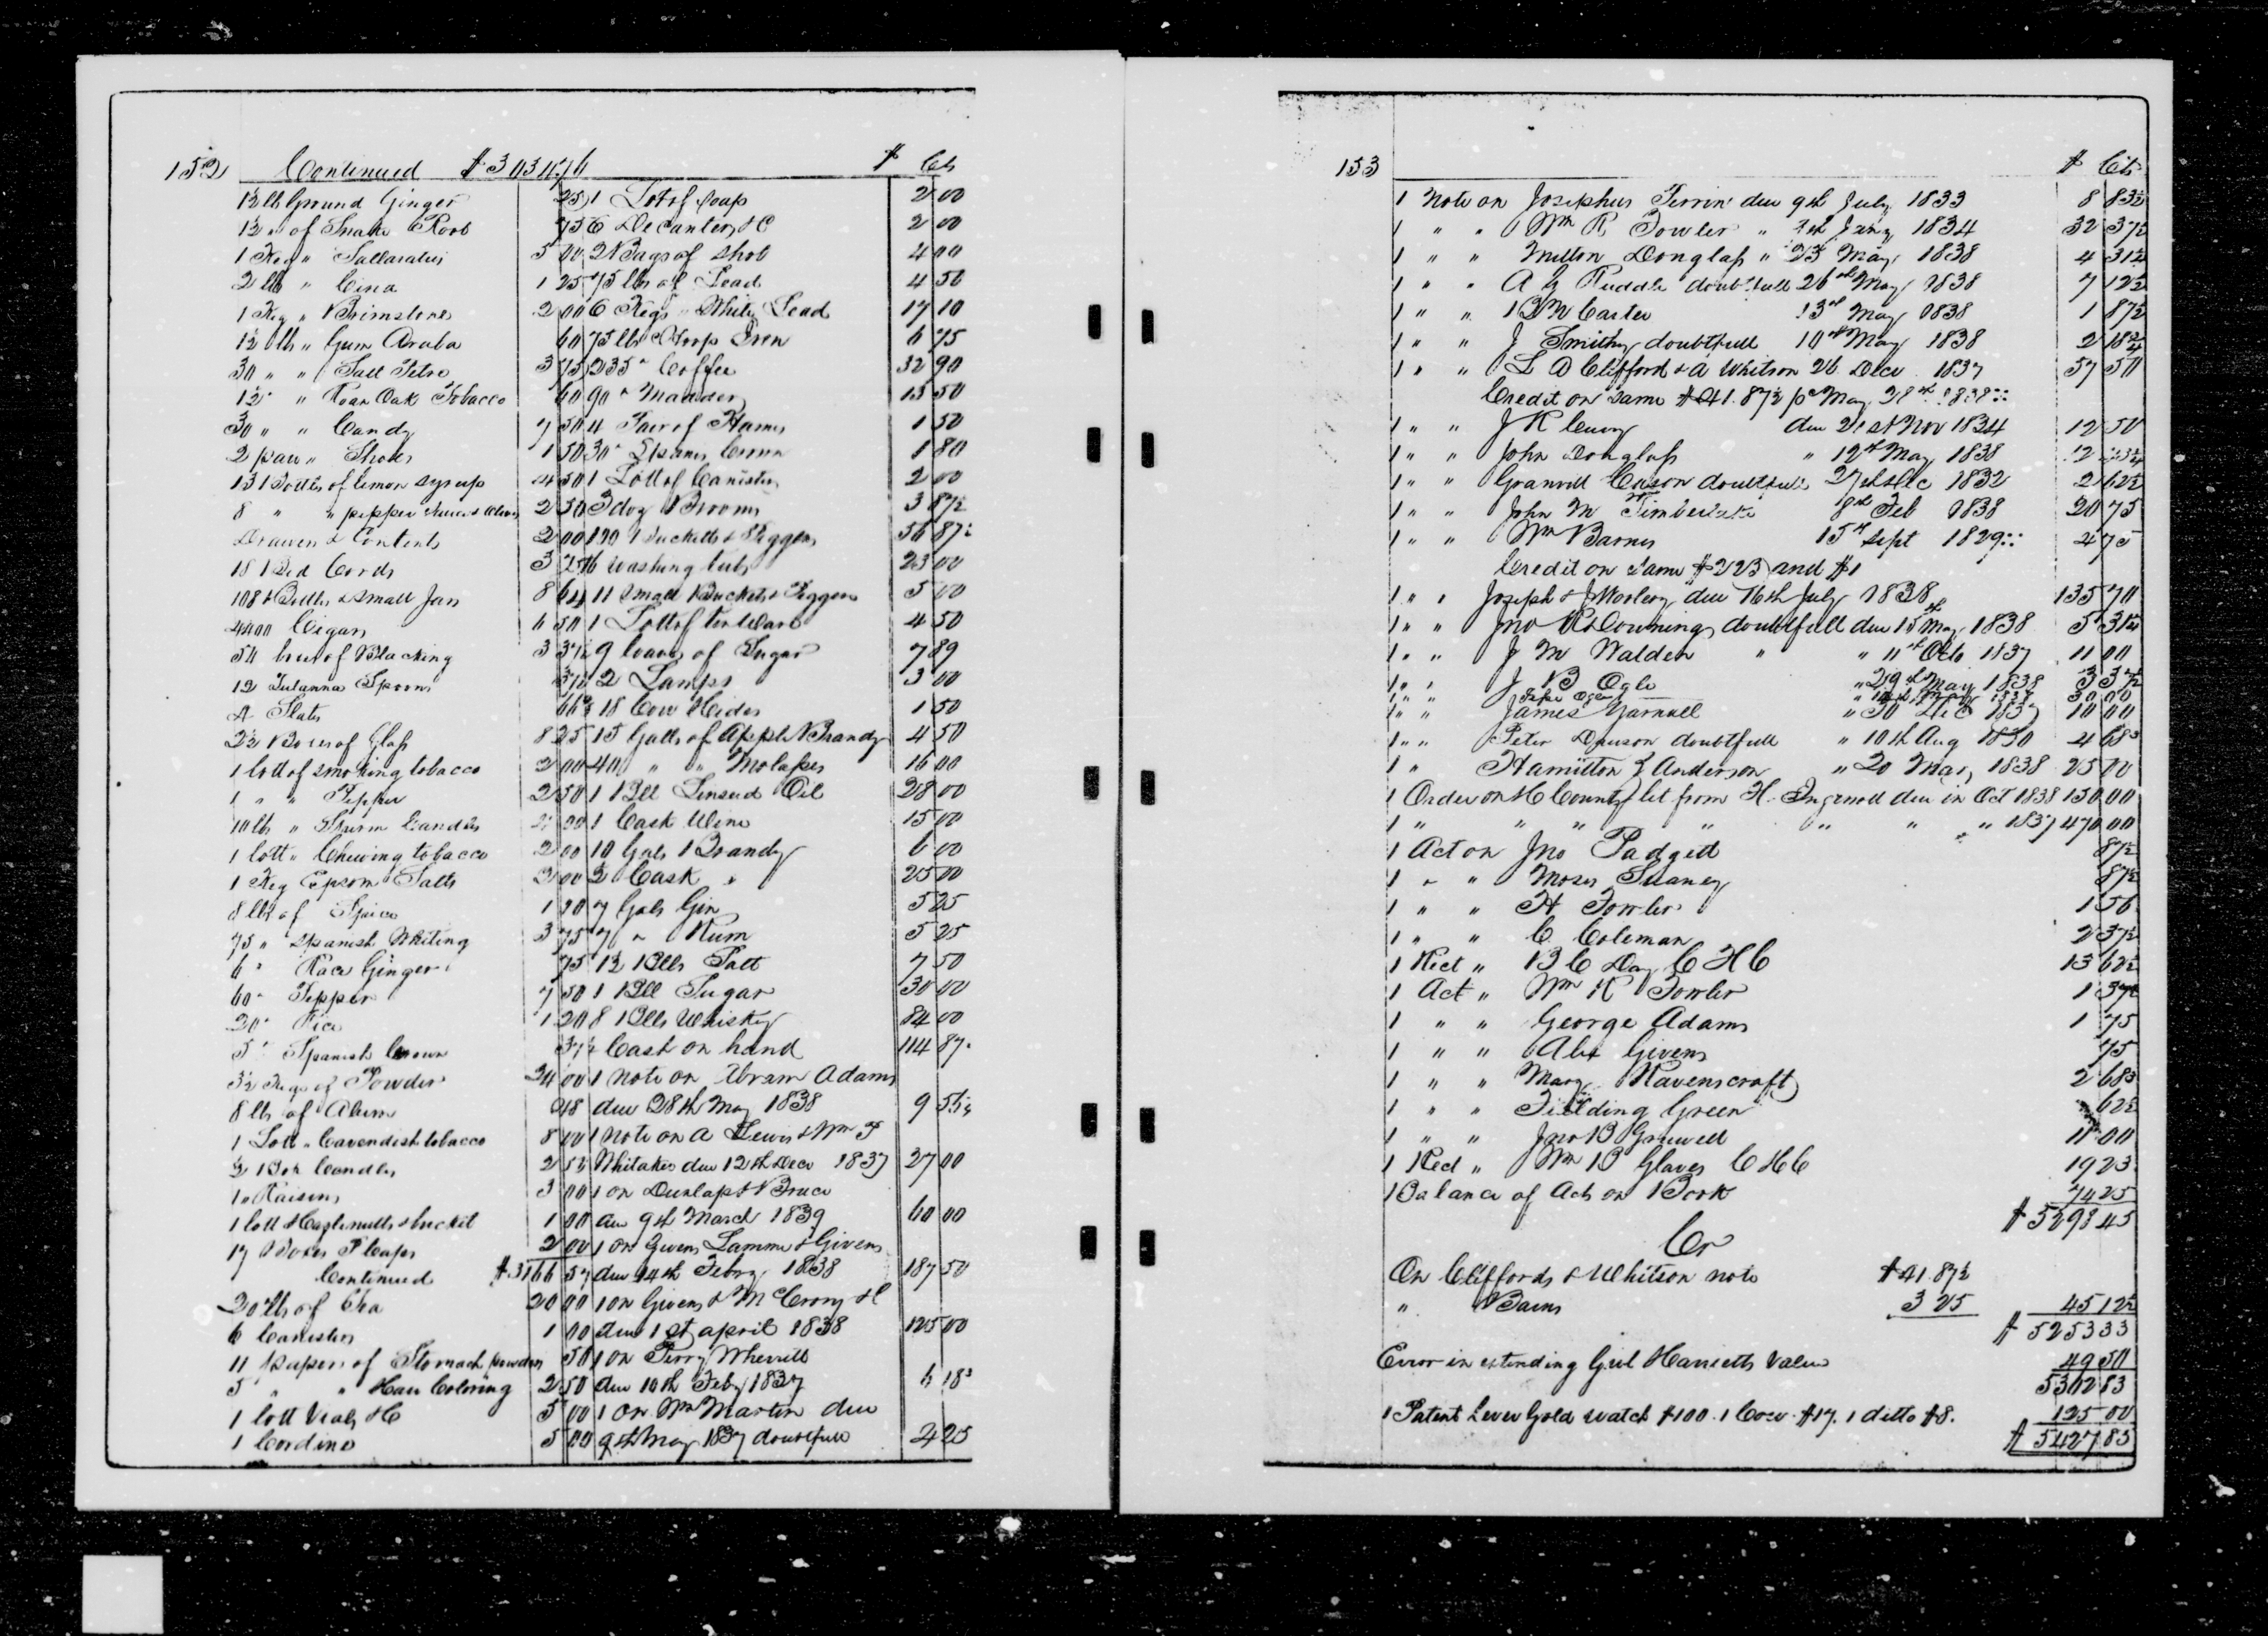 152 Continued $3034.76 $ Cts
1½ lb Ground Ginger 25
1½ " of Snake Root 75
1 Keg " Sallaratus 5 00
2 lb " Cina 1 25
1 Keg " Brimstone 2 00
1½ lb " Gum Araba 60
30 " " Salt Petre 3 75
12 " " Roan Oak Tobacco 60
30 " " Candy 7 50
2 pair " Shoes 1 50
13 Bottles of lemon syrup 4 50
8 " " pepper sauce & Olives 2 50
Drawers & Contents 2 00
18 Bed Cords 3 75
108 Bottles & small Jars 8 64
4400 Cigars 6 50
54 boxes of Blacking 3 37½
12 Spoons 37½
4 Slats 66⅔
2½ Boxes of Glass 8 25
1 lott of smoking tobacco 2 00
1 " " Pepper 2 50
10 lbs " Sperm Candles 00
1 lott " Chewing tobacco 2 00
1 Keg Epsom Salts 2 00
8 lbs of Spice 1 20
75 " Spanish Whiting 3 75
6 " Race Ginger 75
60 " Pepper 7 50
20 " Rice 1 20
5 " Spanish Brown 37½
3½ Kegs of Powder 24 00
8 lbs of Alum 48
1 Lott " Cavendish tobacco 8 00
½ Box Candles 2 53
1 " Raisins 3 00
1 lott Hazlenutts & bucket 1 00
17 Boxes P Caps 2 00
Continued $3166 57
20 lbs of Tea 20 00
6 Canisters 1 00
11 papers of Stomach powders 50
5 " " Hair Coloring 2 50
1 lott Vials &C 5 00
1 Cordine 5 00
1 Lott of Soap 2 00
6 Decanters &C 2 00
2 Bags of Shot 4 00
75 lbs of Lead 4 50
6 Kegs " White Lead 17 10
75 lbs Hoop Iron 6 75
235 " Coffee 32 90
90 " Madder 13 50
4 Pair of Hames 1 50
30 " Spanis Brown 1 80
1 Lott of Canisters 2 00
3 doz Brooms 3 87½
190 Bucketts & Piggens 56 87½
16 washing tubs 23 00
11 Small Buckets & Piggens 5 00
1 Lott of tin Ware 4 50
9 loaves of Sugar 7 89
2 Lamps 3 00
18 Cow Hides 1 50
15 Galls of Apple Brandy 4 50
40 " " Molasses 16 00
1 Bll Linseed Oil 28 00
1 Cask Wine 15 00
10 Gals Brandy 6 00
½ Cask " 25 00
7 Gals Gin 5 25
7 " Rum 5 25
1½ Blls Salt 7 50
1 Bll Sugar 30 00
8 Blls Whiskey 84 00
Cash on hand 114 87
1 note on Abram Adams
due 28th May 1838 9 56¼
1 note on A Lewis & Wm P
Whitaker due 12th Decr 1837 27 00
1 on Dunlap & Bruce
due 9th March 1839 60 00
1 on Givens Lamme & Givens
due 14th Febry 1838 187 50
1 on Givens & McCrory &C
due 1st april 1838 125 00
1 on Perry Wherritt
due 10th Feby 1837 6 18¾
1 on Wm Martin due
9th May 1837 doubtfull 4 25
153 $ Cts
1 Note on Josephus Perrin due 9th July 1833 8 83½
1 " " Wm R Fowler " 7th Jany 1834 32 37½
1 " " Milton Douglass " 23 May 1838 4 31¼
1 " " A G Ruddle doubtfull 26th May 1838 7 12½
1 " " B W Carter 13th May 1838 1 87½
1 " " J Smithy doubtfull 10th May 1838 2 18¾
1 " " L D Clifford & A Whitson 26 Decr 1837 57 50
Credit on same $41.87½ pr May 28th 1838
1 " " J R Curry due 21st Nov 1834 12 50
1 " " John Douglass " 12th May 1838
1 " " Granvill Cason doubtfull 27th Dec 1832 2 62½
1 " " John M Timberlake 8th Feb 1838 20 75
1 " " Wm Barnes 15th Sept 1829 4 75
Credit on Same $225 and $1
1 " " Joseph & J Woolery due 16th July 1838 135 70
1 " " Jno R Downing doubtfull due 15th May 1838 5 31¼
1 " " J M Walden " " 11th Octo 1837 11 00
1 " " J B Ogle " 29th May 1838 3 37½
1 " " 30 00
1 " " James Yarnall " 30 Dec 1837 10 00
1 " " Peter Dawson doubtfull " 10th Aug 1830 4 68¾
1 " Hamilton G Anderson " 20 May 1838 25 00
1 Order on H County let from H. Ingrnell due in Oct 1838 150 00
1 " " " " " " " 1837 470 00
1 Act on Jno Padgett 87½
1 " " Moses Suaney 87½
1 " " H Fowler 1 56
1 " " C Coleman 2 37½
1 Rect " B C Day C H C 13 62½
1 Act " Wm R Fowler 1 37½
1 " " George Adams 1 75
1 " " Alex Givens 75
1 " " Mary Ravenscraft 2 68¾
1 " " Fielding Green 62½
1 " " Jno B Gruwell 11 00
1 Rect " Wm B Glaves C H C 19 23
Balance of Acts on Book 74 25
$5298 45
Cr
On Cliffords & Whitson note $41.87½
" Barns 3 25 45 12½
$5253 33
Error in extending Girl Harrietts Value 49 50
5302 83
1 Patent Lever Gold watch $100. 1 Cow $17. 1 ditto $8. 125 00
$5427 83